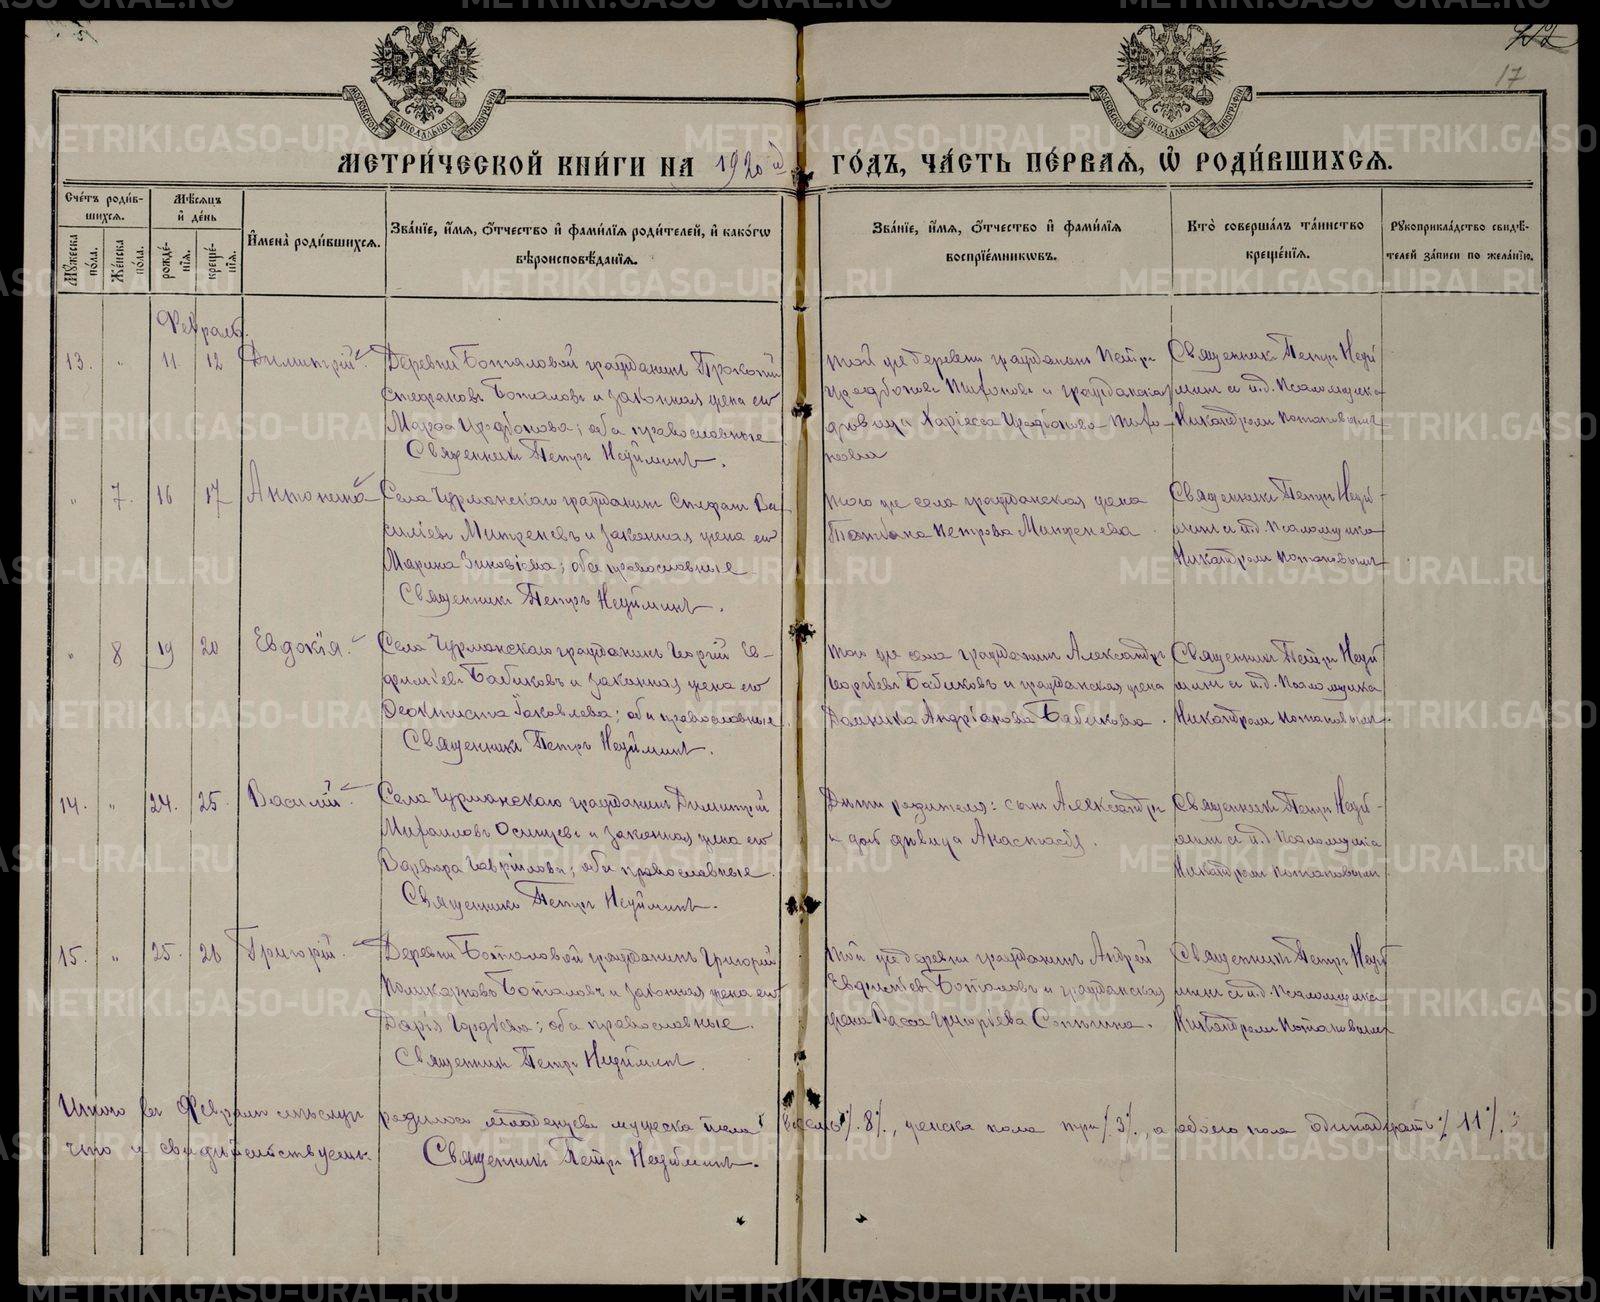 17
МОСКОВСКОЙ СѴНОДАЛЬНОЙ ТИПОГРАФІИ
МОСКОВСКОЙ СѴНОДАЛЬНОЙ ТИПОГРАФІИ
МЕТРИ́ЧЕСКОЙ КНИ́ГИ НА 1920 й ГО́ДЪ, ЧА́СТЬ ПЕ́РВАЯ, Ѡ҆ РОДИ́ВШИХСЯ.
Сче́тъ роди́в-
шихся.
Мѣ́сяцъ
и҆ де́нь
Мꙋ́жеска по́ла.
Же́нска по́ла.
рожде́-
нїя.
креще́-
нїя.
И҆мена̀ роди́вшихся.
Зва́нїе, и҆́мя, ѻ҆́тчество и҆ фами́лїя роди́телей, и҆ како́гѡ
вѣроисповѣ́данїя.
Зва́нїе, и҆́мя, ѻ҆́тчество и҆ фами́лїя
воспрїе́мникѡвъ.
Кто̀ соверша́лъ та́инство
креще́нїя.
Рꙋкоприкла́дство свидѣ́-
телей за́писи по жела́нїю.
Февраль.
13. " 11 12 Димитрій
Деревни Боталовой гражданинъ Прокопій
Стефановъ Боталовъ и законная жена его
Марѳа ; оба православные
Священникъ Петръ Неуйминъ.
той же деревни гражданинъ Петръ
и гражданская
дѣвица
Священникъ Петръ Неуй
минъ съ и.д. Псаломщика
Никандромъ Потаповымъ
" 7. 16 17 Антонина
Села Чурманскаго гражданинъ Стефанъ Ва-
силіевъ и законная жена его
Марина Зиновіева; оба православные
Священникъ Петръ Неуйминъ.
того же села гражданская жена
Петрова
Священникъ Петръ Неуй-
минъ съ и.д. Псаломщика
Никандромъ Потаповымъ
" 8 19 20 Евдокія.
Села Чурманскаго гражданинъ Георгій Ев-
фиміевъ Бабиковъ и законная жена его
Ѳеоктиста Іаковлева; оба православные
Священникъ Петръ Неуйминъ.
того же села гражданинъ Александръ
Георгіевъ Бабиковъ и гражданская жена
Домника Андріанова Бабикова.
Священникъ Петръ Неуй
минъ съ и.д. Псаломщика
Никандромъ Потаповымъ
14. " 24. 25. Василій
Села Чурманскаго гражданинъ Димитрій
Михаиловъ Осинцевъ и законная жена его
Варвара Гавріилова; оба православные.
Священникъ Петръ Неуйминъ.
Дѣти родителя: сынъ Александръ
и дочь дѣвица Анастасія.
Священникъ Петръ Неуй-
минъ съ и.д. Псаломщика
Никандромъ Потаповымъ
15. " 25. 26 Григорій.
Деревни Боталовой гражданинъ Григорій
Поликарповъ Боталовъ и законная жена его
Дарія Гордѣева; оба православные.
Священникъ Петръ Неуйминъ.
той же деревни гражданинъ Андрей
Евфиміевъ Боталовъ и гражданская
жена Васса Григоріева Сопинина.
Священникъ Петръ Неуй
минъ съ и.д. Псаломщика
Никандромъ Потаповымъ
Итого въ Февралѣ мѣсяцѣ родилось младенцевъ мужеска пола восемь /8/., женска пола три /3/., а обоего пола одинадцать /11/.
что и свидѣтельствуемъ. Священникъ Петръ Неуйминъ.
METRIKI.GASO-URAL.RU